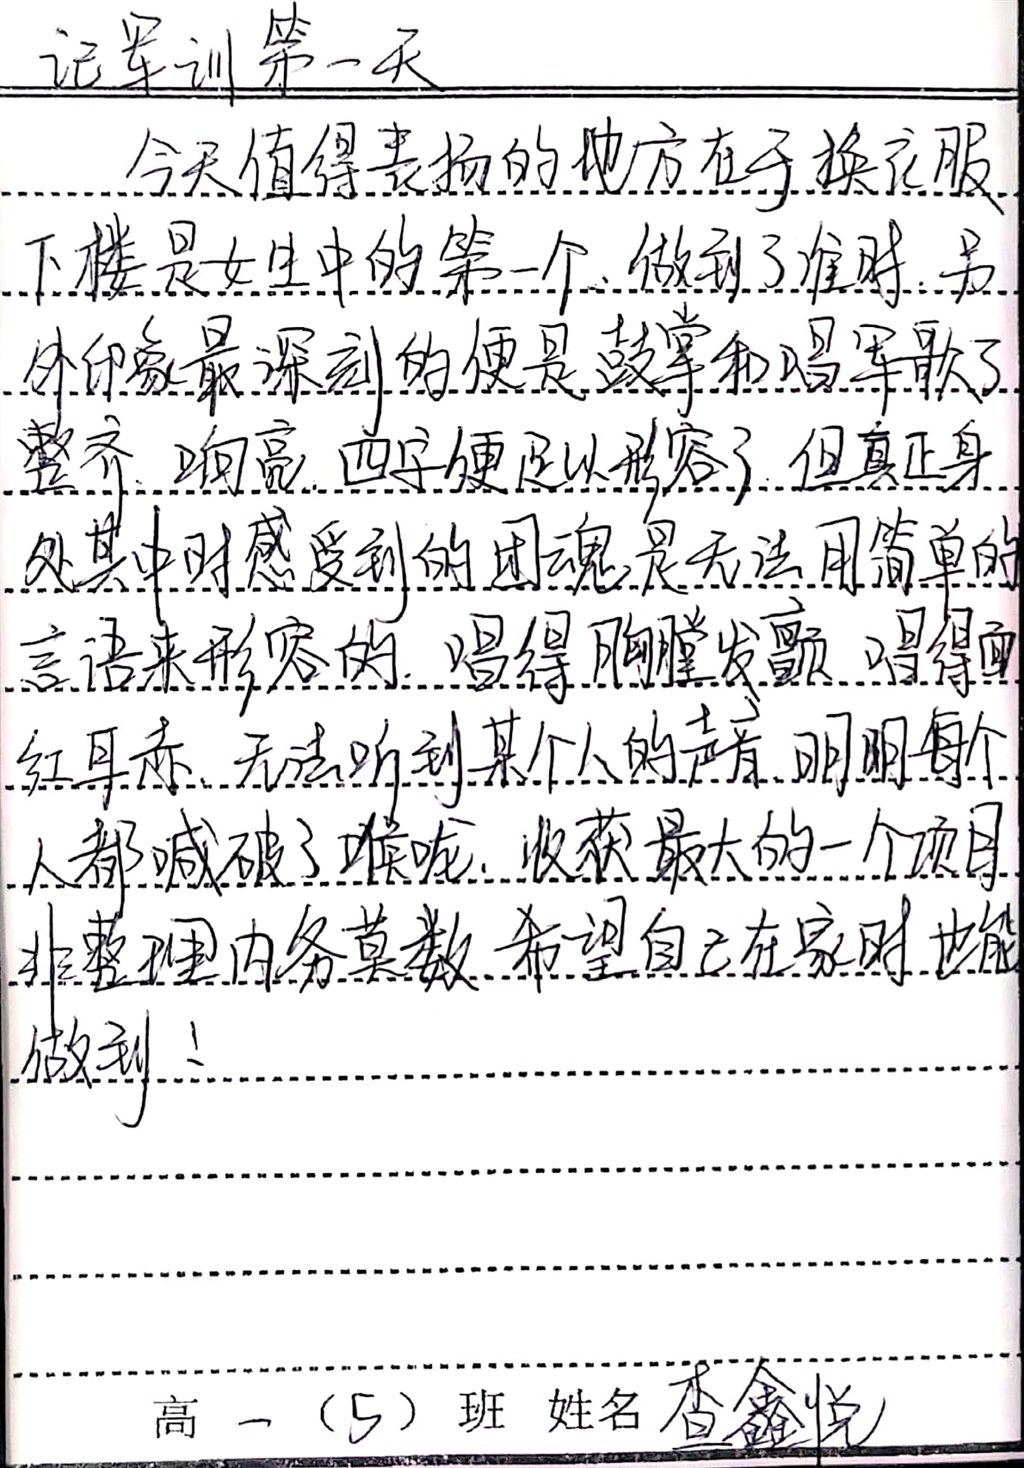 记军训第一天
今天值得表扬的地方在于换衣服
下楼是女生中的第一个、做到了准时.另
外印象最深刻的便是鼓掌和唱军歌了
整齐.响亮.四字便足以形容了.但真正身
处其中时感受到的团魂是无法用简单的
言语来形容的.唱得胸膛发颤.唱得面
红耳赤、无法听到某个人的声音.明明每个
人都喊破了喉咙.收获最大的一个项目
非整理内务莫数.希望自己在家时也能
做到!
高一(5)班 姓名 查鑫悦